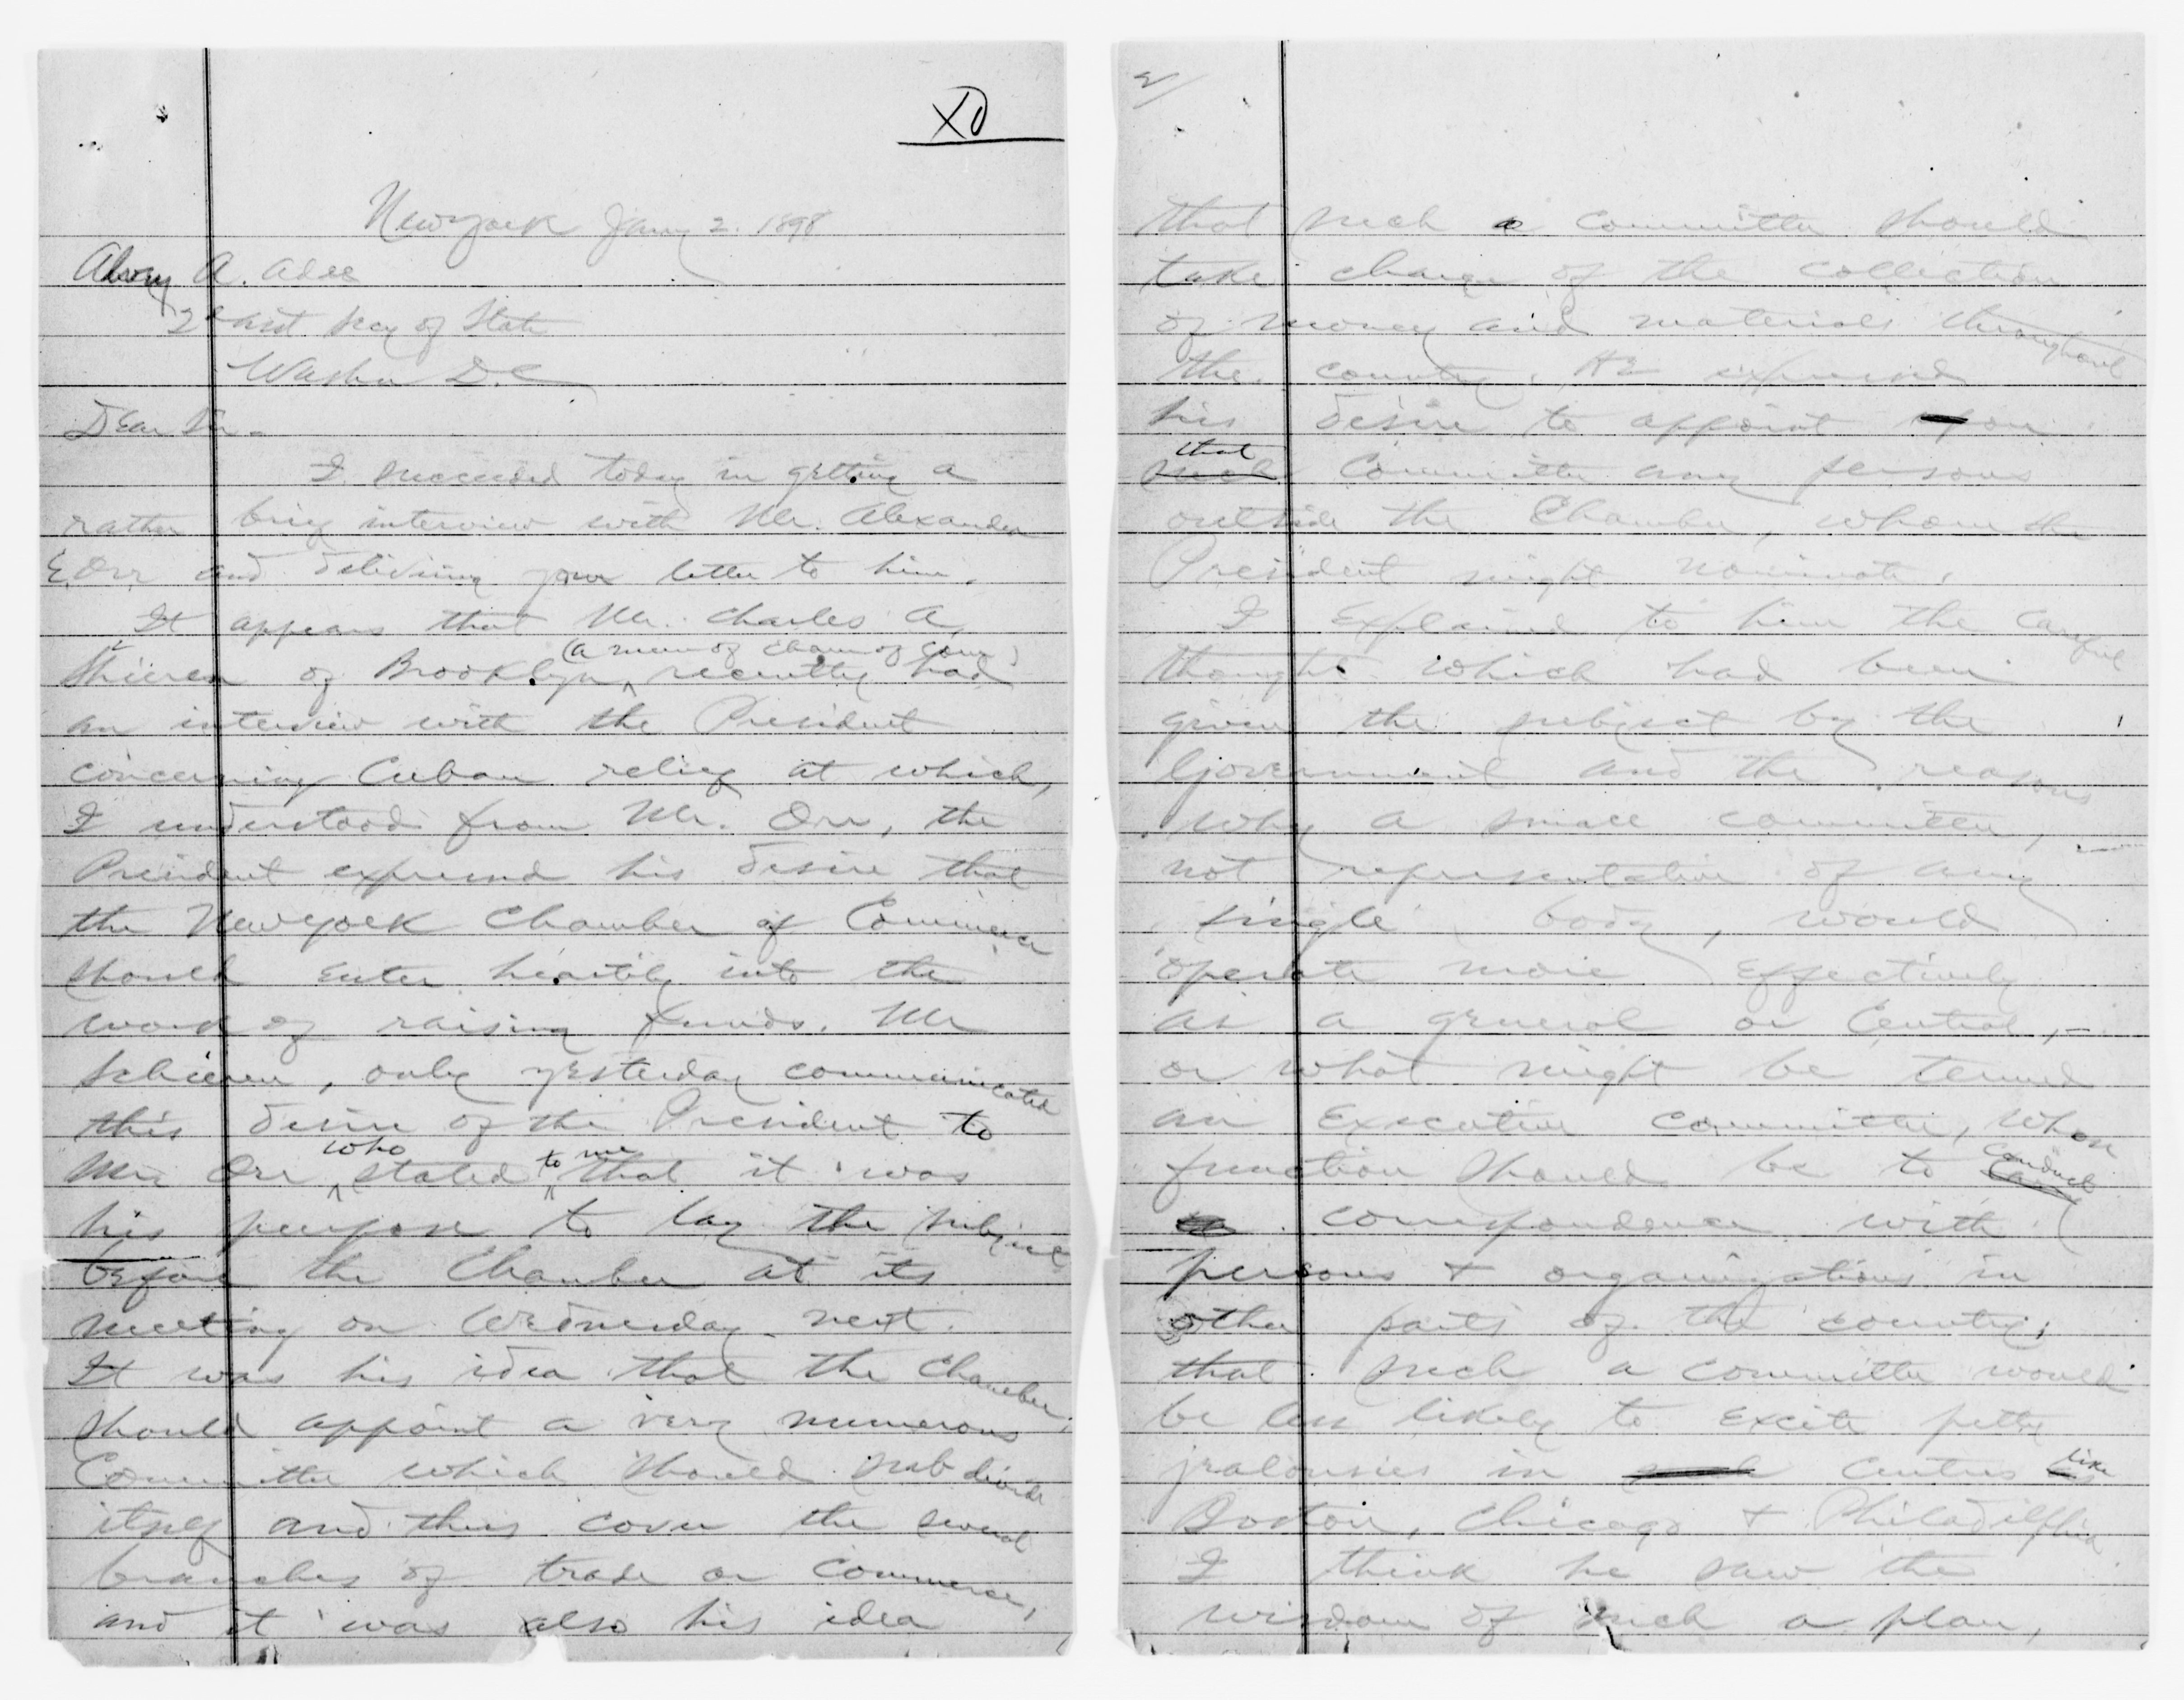 XD
New york Jany 2. 1898
Alvey A. Adee
2d Asst Secy of State
Washn D.C
Dear Sir -
I succeeded today in getting a
rather brief interview with Mr. Alexander
E. Orr and delivering your letter to him.
It appears that Mr. Charles A.
Shieren of Brooklyn, (a mem of Cham of Com) recently had
an interview with the President
concerning Cuban relief at which,
I understood from Mr. Orr, the
President expressed his desire that
the New york Chamber of Commerce
should enter heartily into the
work of raising funds. Mr
Schieren, only yesterday communicated
this desire of the President to
Mr. Orr who stated to me that it was
his purpose to lay the subject
before the Chamber at its
meeting on Wednesday next.
It was his idea that the Chamber,
should appoint a very numerous
Committee which should sub divide
itself and thus cover the several
branches of trade or commerce,
and it was also his idea
2/
that such a committee should
take charge of the collection
of money and materials throughout
the country. He expressed
his desire to appoint upon
such that Committee any persons
outside the Chamber, whom the
President might nominate.
I explained to him the careful
thought which had been
given the subject by the
Government and the reasons
why a small committee,
not representative of any
single body, would
operate more effectively
as a general or Central, -
or what might be termed
an Executive Committee, whose
function should be to carry conduct
correspondence with
persons + organizations in
other parts of the country;
that such a committee would
be less likely to excite petty
jealousies in such centres like
Boston, Chicago + Philadelphia
I think he saw the
wisdom of such a plan,